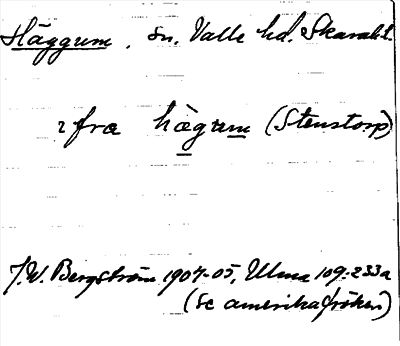 Häggum. sn. Valle hd. Skarab.l.
ifra hägum (Stenstorp)
J.W. Bergström 1904-05, Ulma 109:233a
(se amerikafröken)